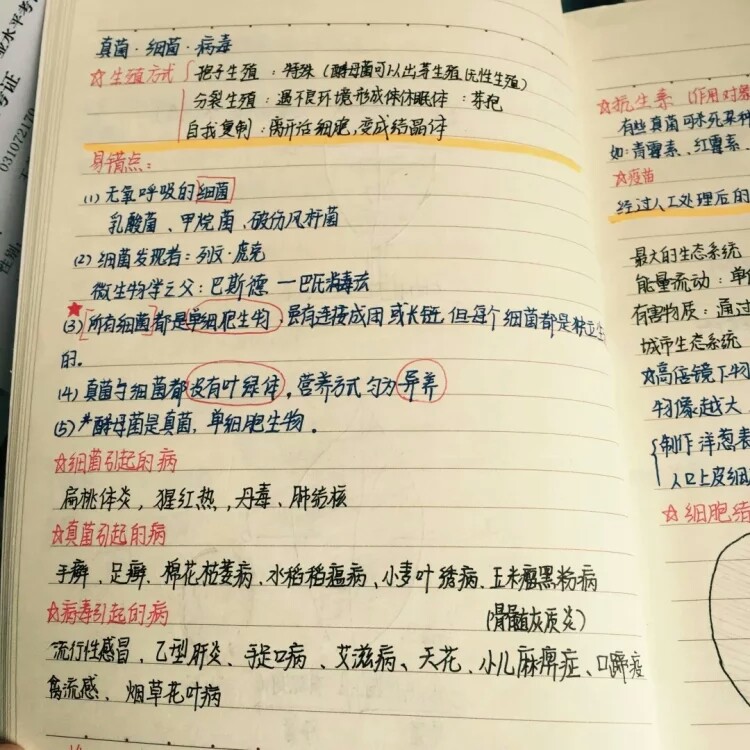 真菌·细菌·病毒
☆生殖方式 孢子生殖：特殊（酵母菌可以出芽生殖,无性生殖）
分裂生殖：遇不良环境形成休眠体：芽孢
自我复制：离开活细胞,变成结晶体
易错点：
(1) 无氧呼吸的细菌
乳酸菌、甲烷菌、破伤风杆菌
(2) 细菌发现者：列文·虎克
微生物学之父：巴斯德—巴氏消毒法
★(3) [所有细菌]都是单细胞生物,虽有连接成团或长链,但每个细菌都是独立生
的。
(4) 真菌与细菌都没有叶绿体,营养方式匀为异养
(5) *酵母菌是真菌,单细胞生物。
☆细菌引起的病
扁桃体炎,猩红热,丹毒、肺结核
☆真菌引起的病
手癣、足癣、棉花枯萎病、水稻稻瘟病、小麦叶锈病、玉米瘤黑粉病
☆病毒引起的病
(骨髓灰质炎)
流行性感冒、乙型肝炎、手足口病、艾滋病、天花、小儿麻痹症、口蹄疫
禽流感、烟草花叶病
业水平考
考证
031072170
性别:
☆抗生素 (作用对象
有些真菌可杀死某种
如:青霉素、红霉素、
☆疫苗
经过人工处理后的
最大的生态系统
能量流动：单
有害物质：通过
城市生态系统
☆高倍镜下物
物像越大
制作洋葱表
人口上皮细
☆细胞结